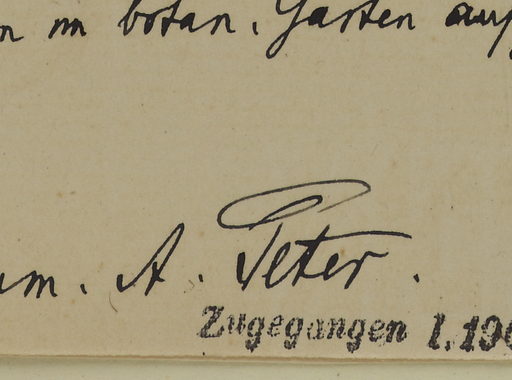 n im botan. Garten auf
um. A. Peter.
Zugegangen 1.190